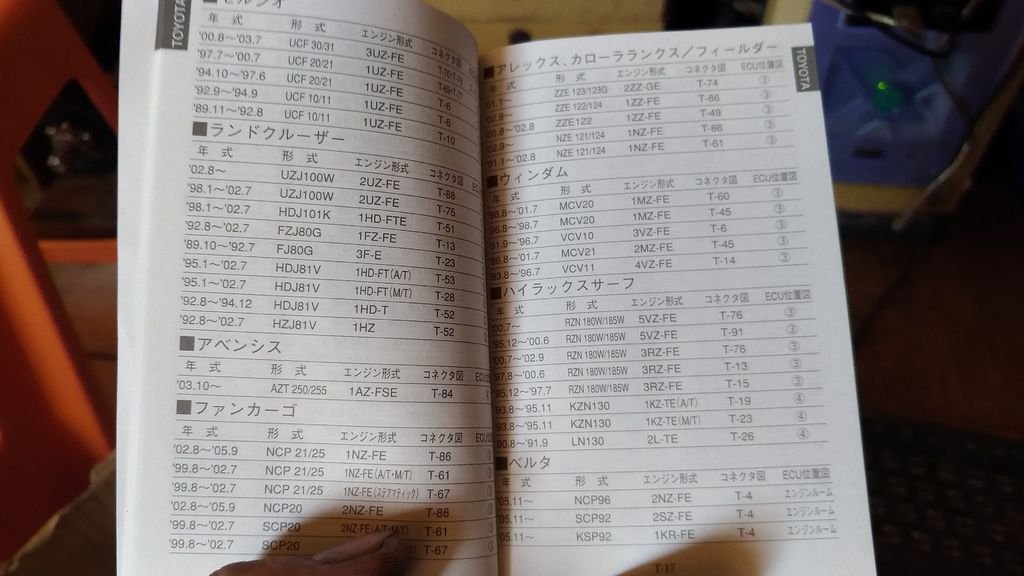 TOYOTA
■セルシオ
年 式 形 式 エンジン形式 コネクタ図
'00.8～'03.7 UCF 30/31 3UZ-FE
'97.7～'00.7 UCF 20/21 1UZ-FE
'94.10～'97.6 UCF 20/21 1UZ-FE T-69・T-71
'92.9～'94.9 UCF 10/11 1UZ-FE T-6
'89.11～'92.8 UCF 10/11 1UZ-FE T-6
T-10
■ランドクルーザー
年 式 形 式 エンジン形式 コネクタ図
'02.8～ UZJ100W 2UZ-FE T-88
'98.1～'02.7 UZJ100W 2UZ-FE T-75
'98.1～'02.7 HDJ101K 1HD-FTE T-51
'92.8～'02.7 FZJ80G 1FZ-FE T-13
'89.10～'92.7 FJ80G 3F-E T-23
'95.1～'02.7 HDJ81V 1HD-FT(A/T) T-53
'95.1～'02.7 HDJ81V 1HD-FT(M/T) T-28
'92.8～'94.12 HDJ81V 1HD-T T-52
'92.8～'02.7 HZJ81V 1HZ T-52
■アベンシス
年 式 形 式 エンジン形式 コネクタ図
'03.10～ AZT 250/255 1AZ-FSE T-84
■ファンカーゴ
年 式 形 式 エンジン形式 コネクタ図
'02.8～'05.9 NCP 21/25 1NZ-FE T-86
'99.8～'02.7 NCP 21/25 1NZ-FE(A/T・M/T) T-61
'99.8～'02.7 NCP 21/25 1NZ-FE(ステアマティック) T-67
'02.8～'05.9 NCP20 2NZ-FE T-86
'99.8～'02.7 SCP20 2NZ-FE(A/T・M/T) T-61
'99.8～'02.7 SCP20 T-67
TOYOTA
■アレックス、カローラランクス／フィールダー
年 式 形 式 エンジン形式 コネクタ図 ECU位置図
'01.1～ ZZE 123/123G 2ZZ-GE T-74 ③
'02.9～ ZZE 122/124 1ZZ-FE T-86 ③
'00.8～'02.8 ZZE122 1ZZ-FE T-49 ③
'02.9～ NZE 121/124 1NZ-FE T-86 ③
'01.1～'02.8 NZE 121/124 1NZ-FE T-61 ③
■ウィンダム
年 式 形 式 エンジン形式 コネクタ図 ECU位置図
'98.8～'01.7 MCV20 1MZ-FE T-60 ③
'96.8～'98.7 MCV20 1MZ-FE T-45 ③
'91.9～'96.7 VCV10 3VZ-FE T-6 ③
'96.8～'01.7 MCV21 2MZ-FE T-45 ③
'93.8～'96.7 VCV11 4VZ-FE T-14 ③
■ハイラックスサーフ
年 式 形 式 エンジン形式 コネクタ図 ECU位置図
'00.7～ RZN 180W/185W 5VZ-FE T-76 ③
'95.12～'00.6 RZN 180W/185W 5VZ-FE T-91 ③
'00.7～'02.9 RZN 180W/185W 3RZ-FE T-76 ③
'97.8～'00.6 RZN 180W/185W 3RZ-FE T-13 ③
'95.12～'97.7 RZN 180W/185W 3RZ-FE T-15 ③
'93.8～'95.11 KZN130 1KZ-TE(A/T) T-19 ④
'93.8～'95.11 KZN130 1KZ-TE(M/T) T-23 ④
'90.8～'91.9 LN130 2L-TE T-26 ④
■ベルタ
年 式 形 式 エンジン形式 コネクタ図 ECU位置図
'05.11～ NCP96 2NZ-FE T-4 エンジンルーム
'05.11～ SCP92 2SZ-FE T-4 エンジンルーム
'05.11～ KSP92 1KR-FE T-4 エンジンルーム
T-17